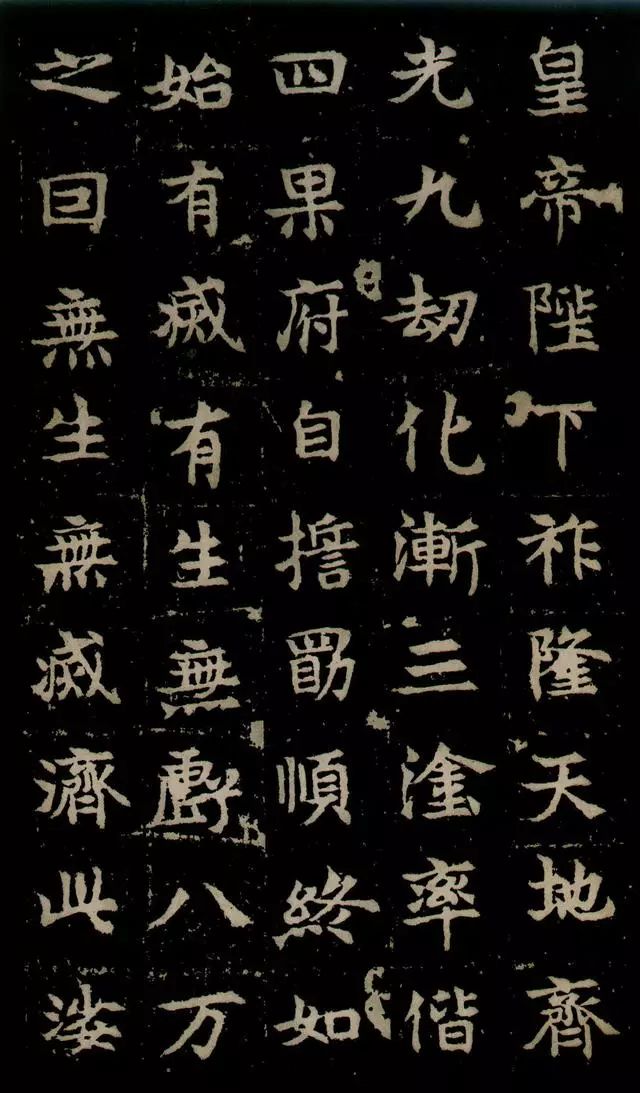 皇帝陛下祚隆天地齊
光九劫化漸三塗率偕
四果府自擔勖順終如
始有滅有生無虧八万
之曰無生無滅濟此婆